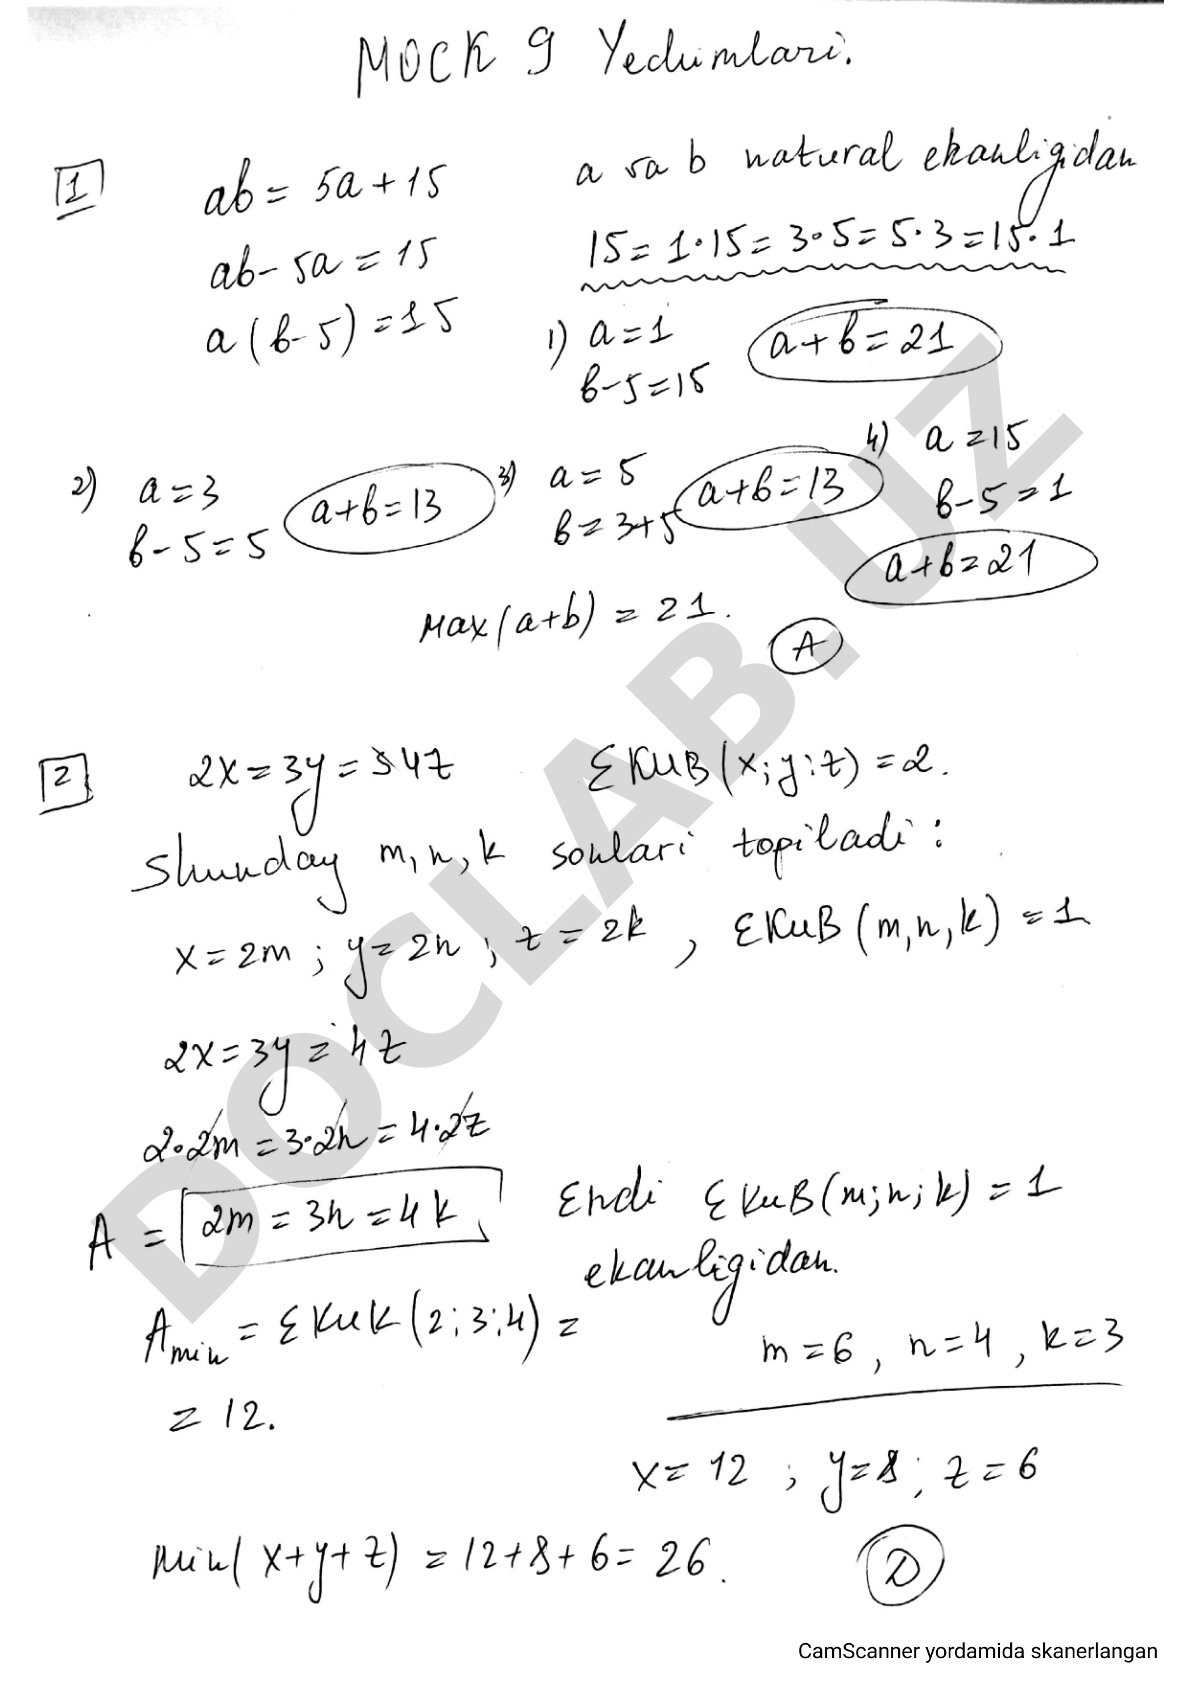 MOCK 9 Yechimlari.
1
ab = 5a + 15
ab - 5a = 15
a (b - 5) = 15
a va b natural ekanligidan
15 = 1·15 = 3·5 = 5·3 = 15·1
1) a = 1
b - 5 = 15
a + b = 21
2) a = 3
b - 5 = 5
a + b = 13
3) a = 5
b = 3 + 5
a + b = 13
4) a = 15
b - 5 = 1
a + b = 21
Max (a + b) = 21.
A
2
2x = 3y = 4z
EKUB (x; y; z) = 2.
Shunday m, n, k sonlari topiladi:
x = 2m ; y = 2n ; z = 2k , EKUB (m, n, k) = 1
2x = 3y = 4z
2·2m = 3·2n = 4·2z
A = 2m = 3n = 4k,
Endi EKUB (m; n; k) = 1
ekanligidan.
Amin = EKUK (2; 3; 4) =
= 12.
m = 6 , n = 4 , k = 3
x = 12 ; y = 8 ; z = 6
min( x + y + z) = 12 + 8 + 6 = 26.
D
DOCLAB.UZ
CamScanner yordamida skanerlangan